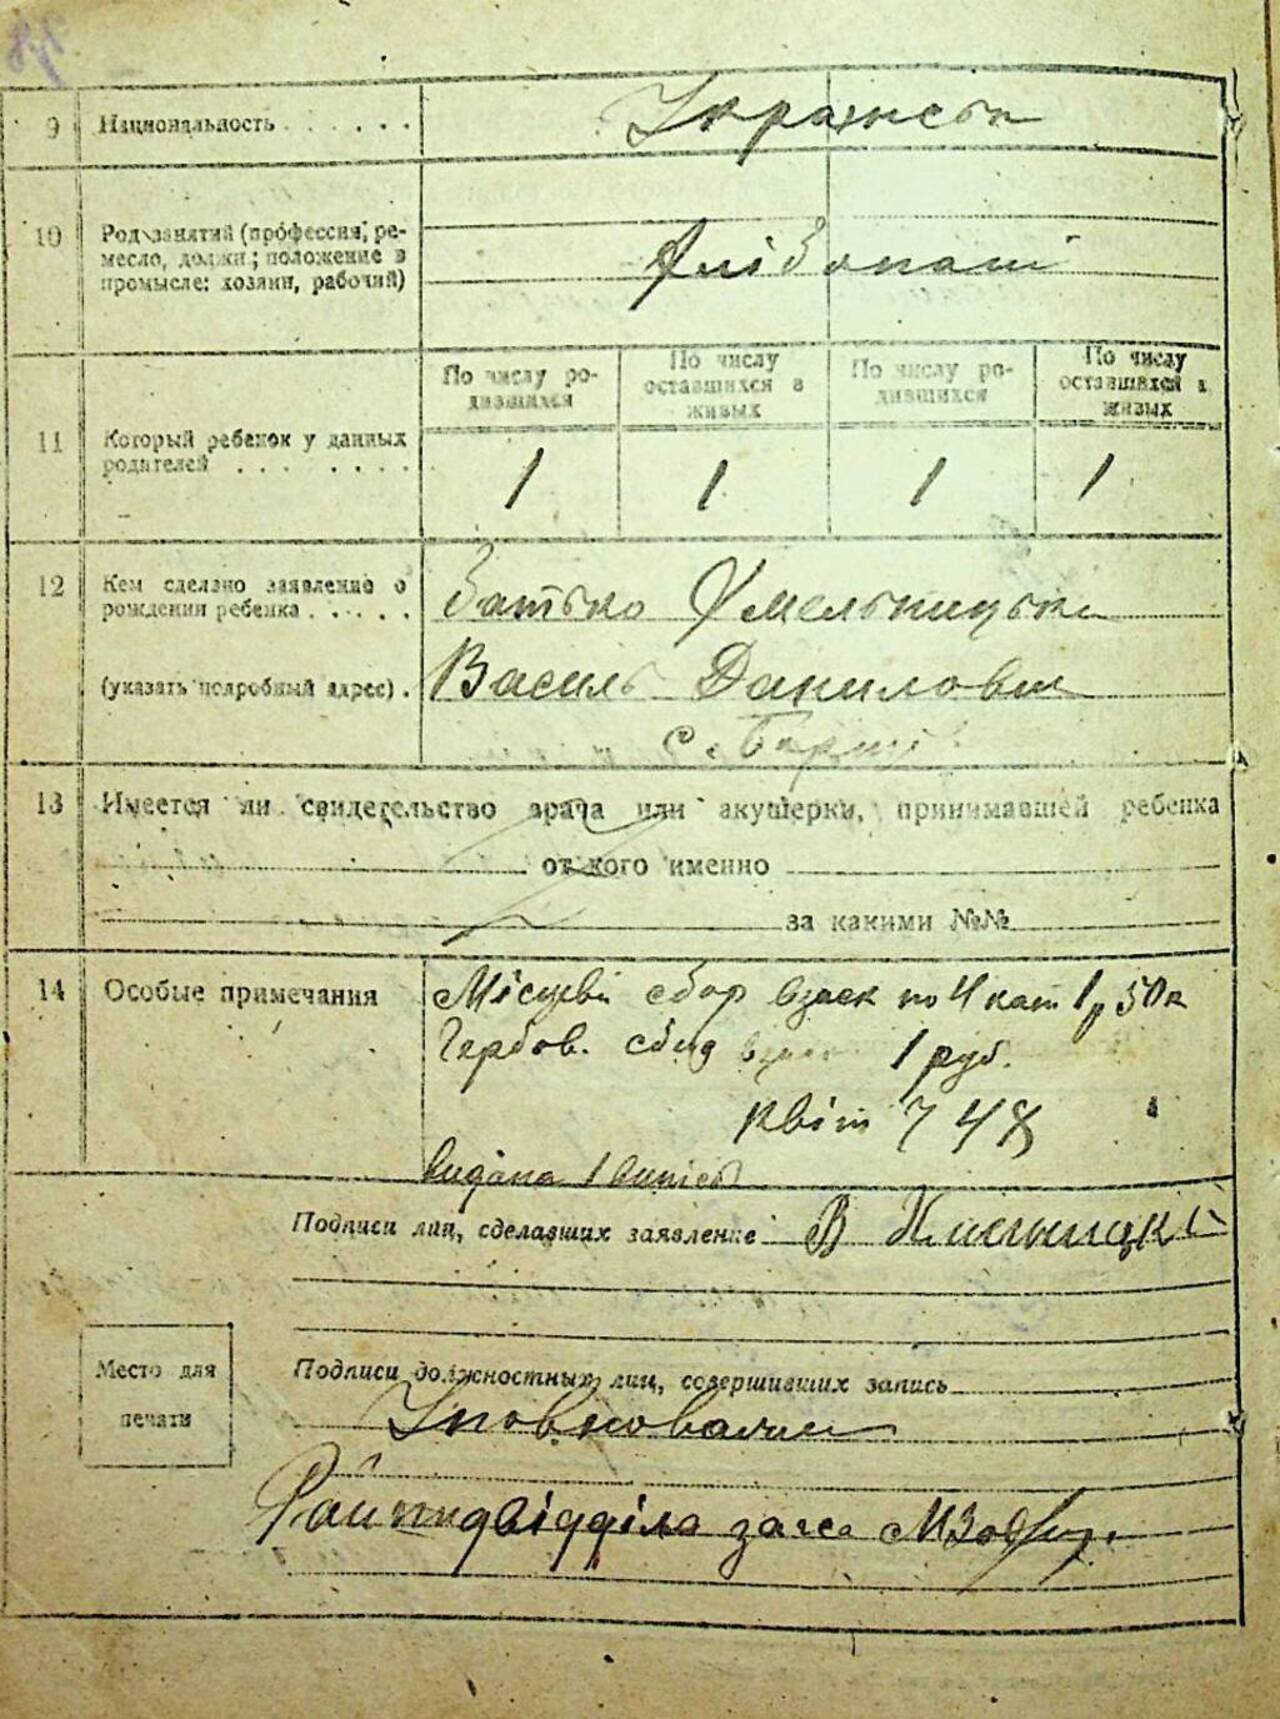 9 Национальность . . . . . . Українськ
10 Род занятий (профессия, ре-
месло, должн; положение в
промысле: хозяин, рабочий)
Хлібопаш
По числу ро-
дившихся
По числу
оставшихся в
живых
По числу ро-
дившихся
По числу
оставшихся в
живых
11 Который ребенок у данных
родителей . . . . . . . .
1 1 1 1
12 Кем сделано заявление о
рождении ребенка . . . . . Батько Хмельницьки
(указать подробный адрес) . Василь Данилович
с.
13 Имеется ли свидетельство врача или акушерки, принимавшей ребенка
от кого именно
за какими №№
14 Особые примечания
Місцеви сбор взыск по 4 кат 1р 50к
Гербов. сбир 1 руб.
квіт 748
видана 1 випись
Подписи лиц, сделавших заявление В
Подписи должностных лиц, совершивших запись
Место для
печати
Уповноважен
Райпидвідділа загса